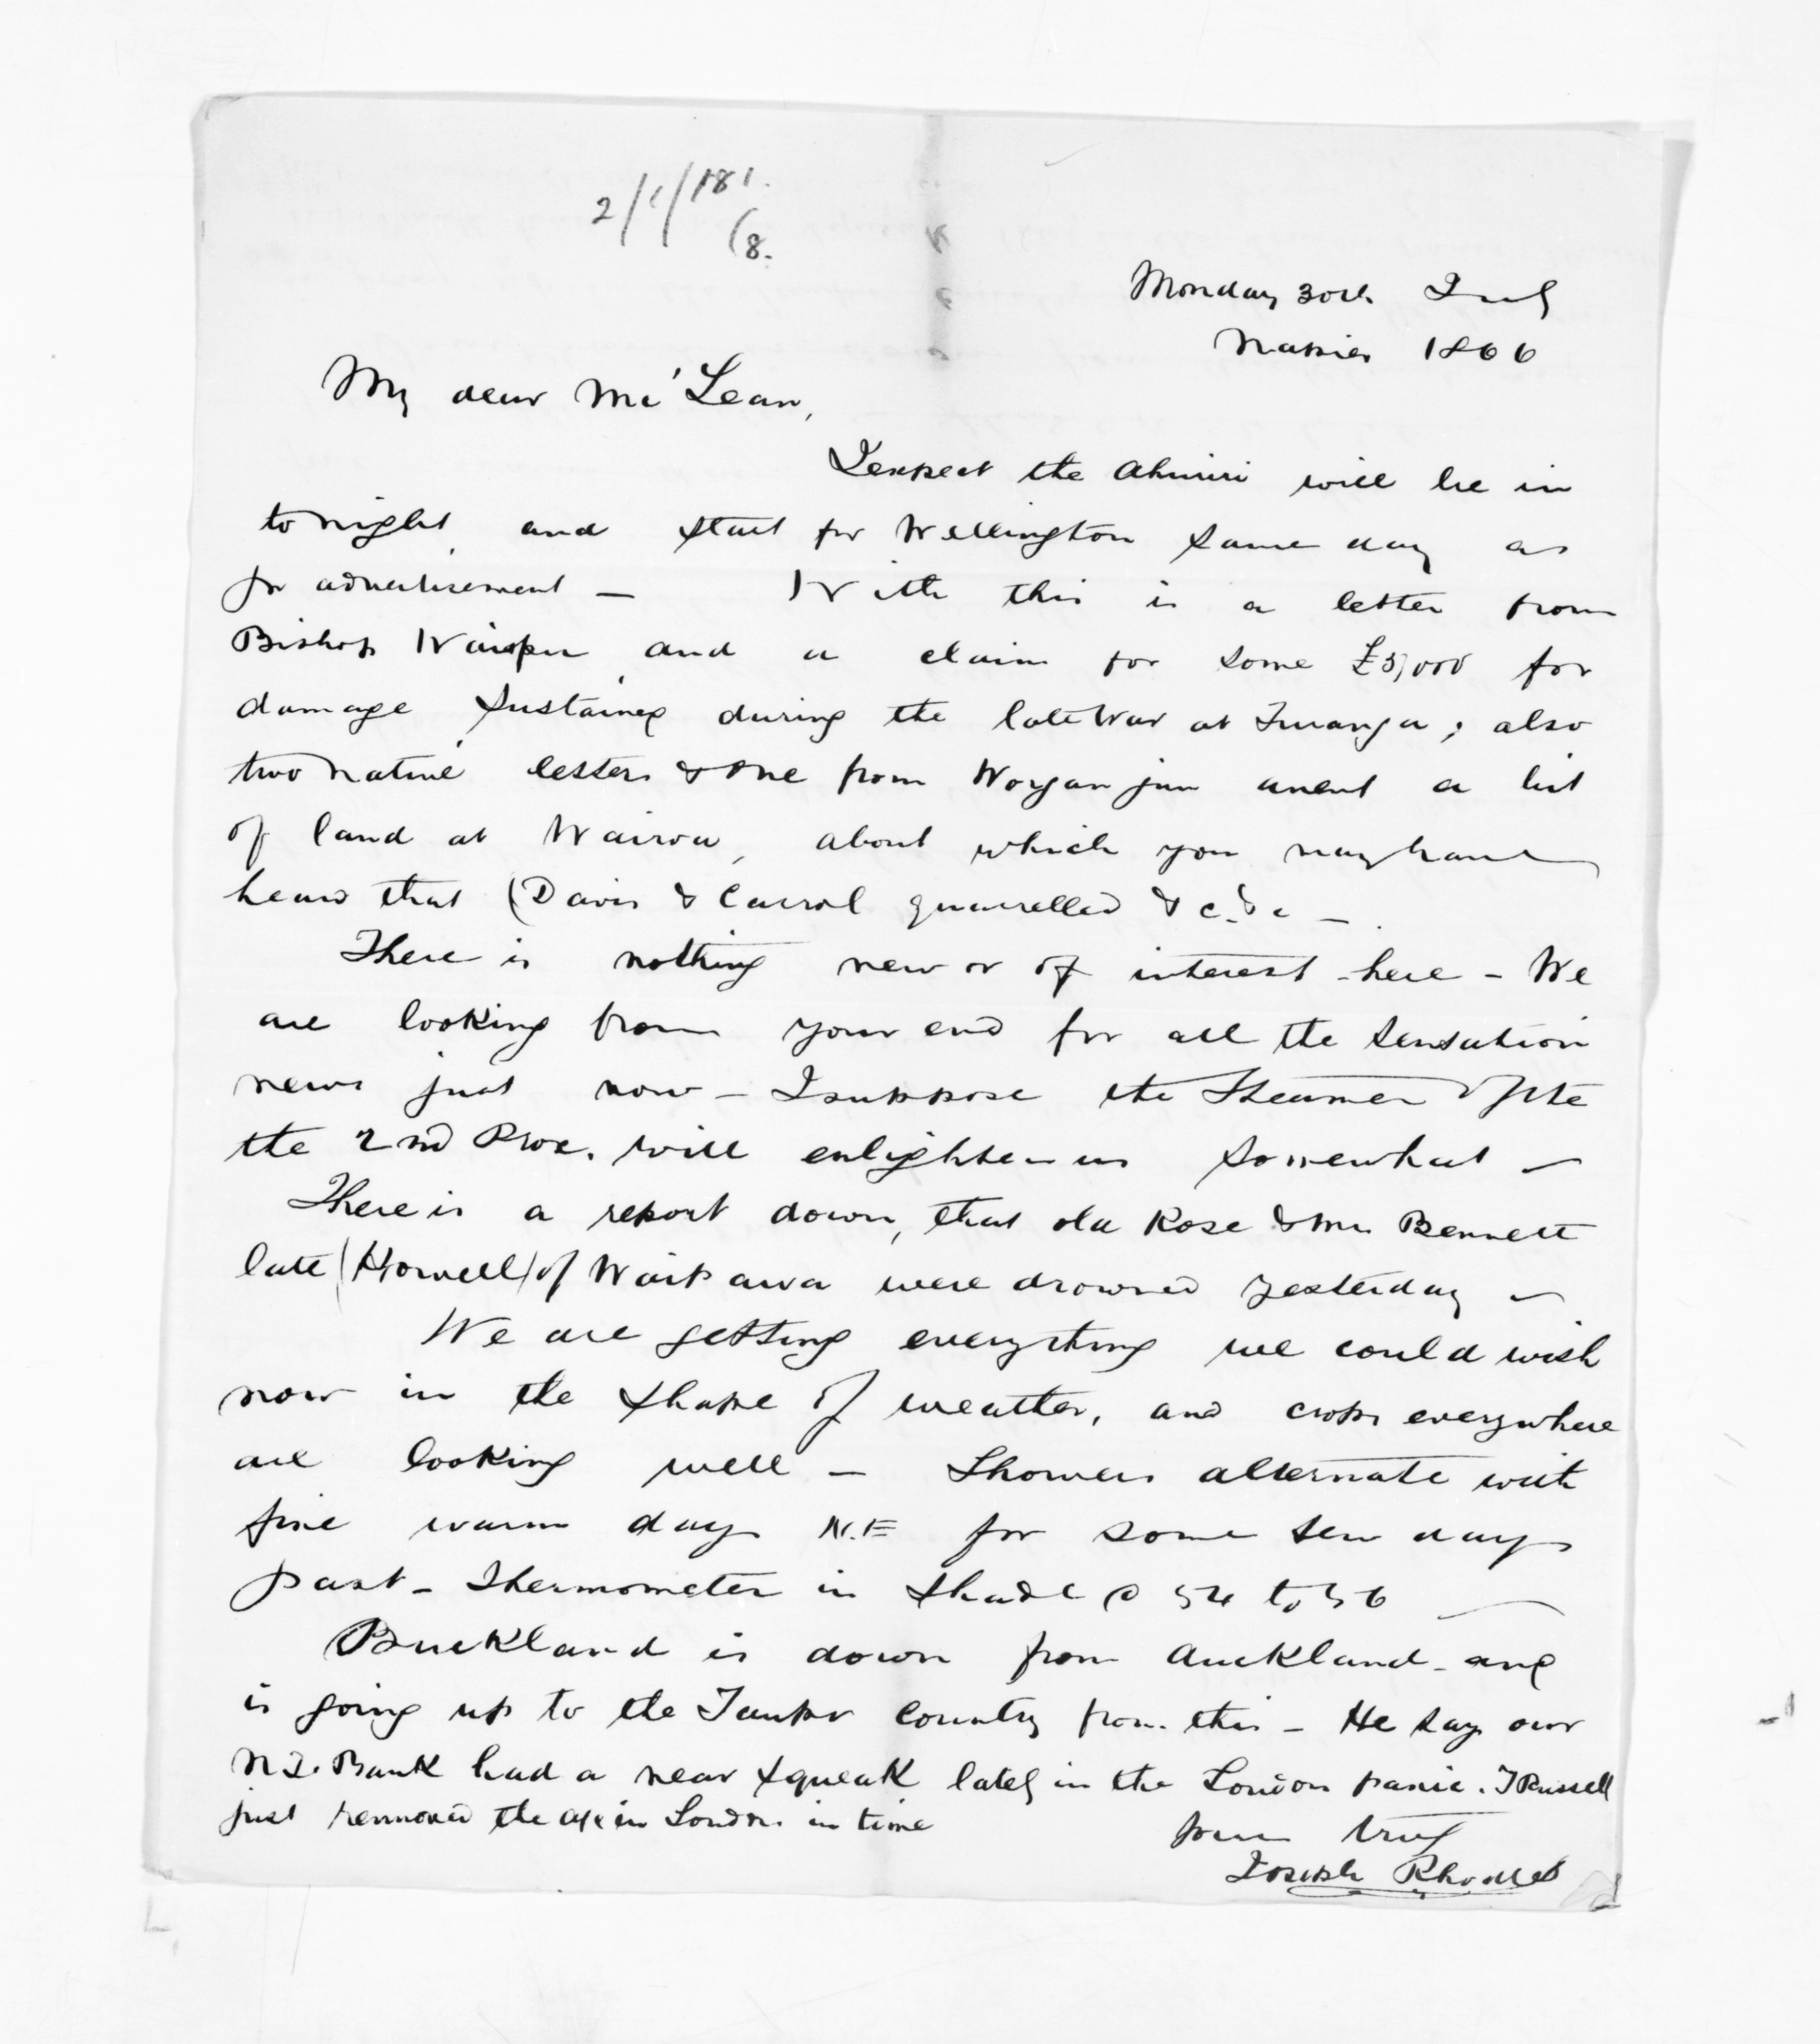 2/1/181.
(8.
Monday 30th July
Napier 1866
My dear Mc'Lean,
I expect the Ahuriri will be in
to night, and start for Wellington same day as
pr advertisement — With this is a letter from
Bishop and a claim for some £5,000 for
damage sustained during the late War at Turanga; also
two native letters & one from Worgan jun anent a bit
of land at Wairoa, about which you may have
heard that (Davis & Carrol quarrelled &c. &c —
There is nothing new or of interest here - We
are looking from your end for all the sensation
news just now — I suppose the Steamer of the
the 2nd Prox. will enlighten us somewhat —
There is a report down, that old Rose & Mrs Bennett
late (Howell) of Waipawa were drowned yesterday —
We are getting everything we could wish
now in the shape of weather, and crops everywhere
are looking well — Showers alternate with
fine warm days N.E for some ten days
past - Thermometer in shade @ 54 to 56 —
Buckland is down from Auckland and
is going up to the Taupo Country from this — He says our
N Z. Bank had a near squeak lately in the London panic. T Russell
just removed the a/c in London in time
Yours truly
Joseph Rhodes